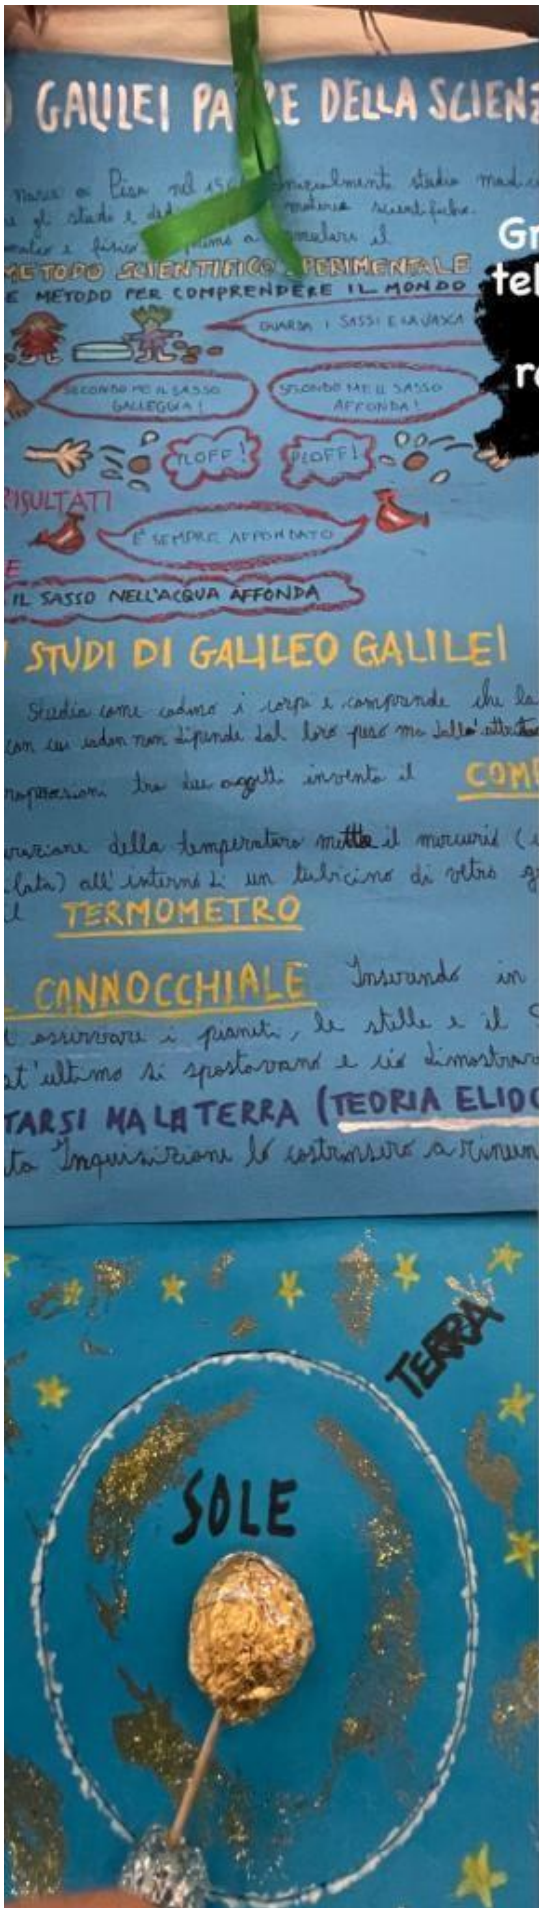 GALILEI PADRE DELLA SCIENZ
nasce a Pisa nel 156 inizialmente studia medic
gli studi e ded materie scientifiche.
matico e fisico primo a formulare il
METODO SCIENTIFICO SPERIMENTALE
E METODO PER COMPRENDERE IL MONDO
Gr
tel
ro
GUARDA I SASSI E LA VASCA
SECONDO ME IL SASSO
GALLEGGIA!
SECONDO ME IL SASSO
AFFONDA!
PLOFF!
PLOFF!
RISULTATI
È SEMPRE AFFONDATO
E
IL SASSO NELL'ACQUA AFFONDA
I STUDI DI GALILEO GALILEI
Studia come cadono i corpi e comprende che la
con cui cadon non dipende dal loro peso ma dall'attrito
roporzioni tra due oggetti inventa il COMP
urazione della temperatura mette il mercurio (
lata) all'interno di un tubicino di vetro g
il TERMOMETRO
L CANNOCCHIALE Inserendo in
osservare i pianeti, le stelle e il S
st'ultimo si spostavano e ciò dimostrav
TARSI MA LA TERRA (TEORIA ELIOC
ta Inquisizione lo costrinsero a rinun
TERRA
SOLE